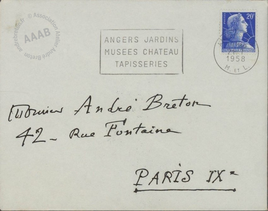 AAAB
ANGERS JARDINS
MUSÉES CHATEAU
TAPISSERIES
20F
1958
M. ET L.
Monsieur André Breton
42 - Rue Fontaine
PARIS IXe